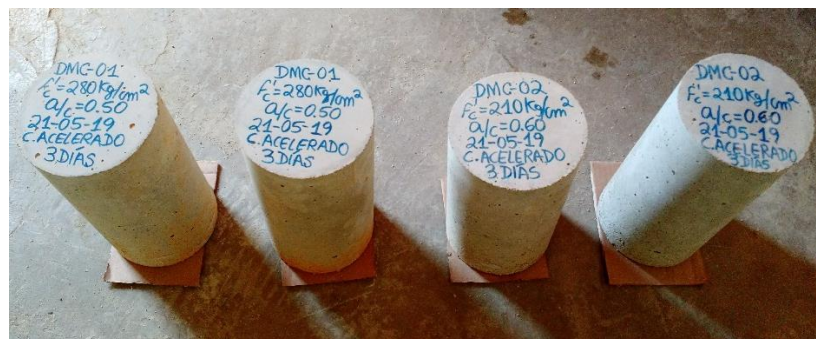 DMC-01
F'c=280kg/cm²
a/c=0.50
21-05-19
C.ACELERADO
3 DÍAS
DMC-01
F'c=280kg/cm²
a/c=0.50
21-05-19
C.ACELERADO
3 DÍAS
DMC-02
F'c=210kg/cm²
a/c=0.60
21-05-19
C.ACELERADO
3 DÍAS
DMC-02
F'c=210kg/cm²
a/c=0.60
21-05-19
C.ACELERADO
3 DÍAS